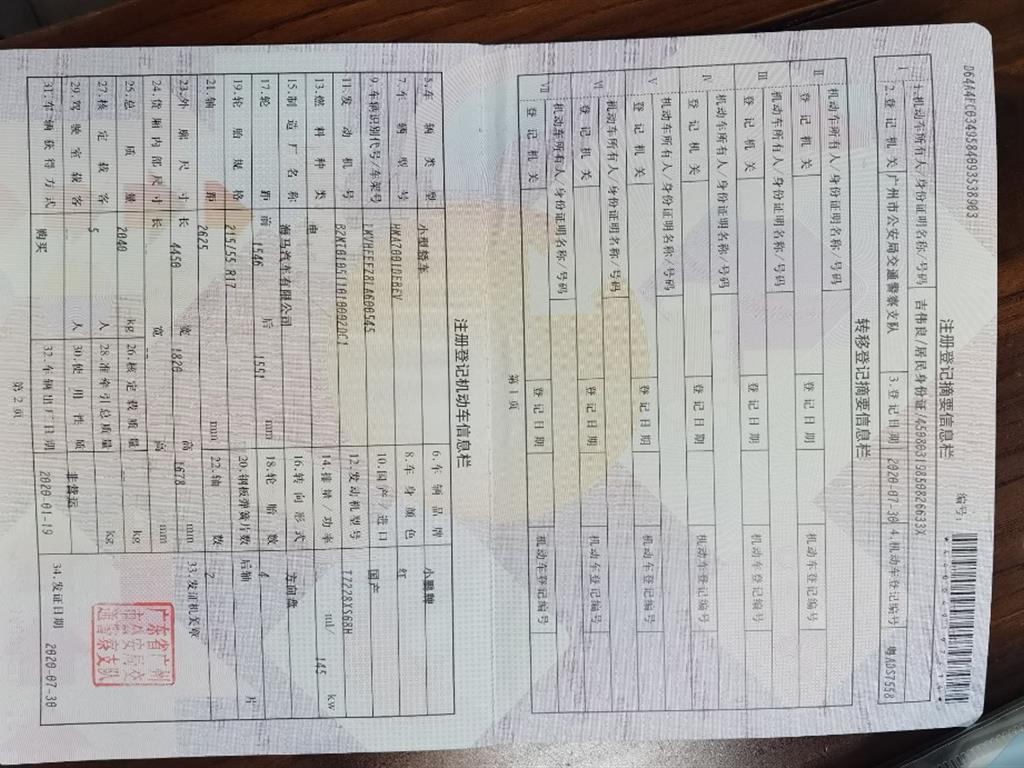 064A4FC034958409353890​3
编号:
注册登记摘要信息栏
I 1.机动车所有人/身份证明名称/号码 吉伟良/居民身份证/45088319850826633X
2.登记机关 广州市公安局交通警察支队 3.登记日期 2020-07-30 4.机动车登记编号 粤ADS7558
转移登记摘要信息栏
II 机动车所有人/身份证明名称/号码
登记机关 登记日期 机动车登记编号
III 机动车所有人/身份证明名称/号码
登记机关 登记日期 机动车登记编号
IV 机动车所有人/身份证明名称/号码
登记机关 登记日期 机动车登记编号
V 机动车所有人/身份证明名称/号码
登记机关 登记日期 机动车登记编号
VI 机动车所有人/身份证明名称/号码
登记机关 登记日期 机动车登记编号
VII 机动车所有人/身份证明名称/号码
登记机关 登记日期 机动车登记编号
第1页
注册登记机动车信息栏
5.车辆类型 小型轿车 6.车辆品牌 小鹏牌
7.车辆型号 HMA7001DFBEV 8.车身颜色 红
9.车辆识别代号/车架号 LMVHFEFZ8LA600545 10.国产/进口 国产
11.发动机号 12.发动机型号 TZ228XS68H
13.燃料种类 电 14.排量/功率 ml/ 145 kw
15.制造厂名称 海马汽车有限公司 16.转向形式 方向盘
17.轮距 前 1546 后 1551 mm 18.轮胎数 4
19.轮胎规格 215/55 R17 20.钢板弹簧片数 后轴 片
21.轴距 2625 mm 22.轴数 2
23.外廓尺寸 长 4450 宽 1820 高 1678 mm 33.发证机关章
24.货厢内部尺寸 长 宽 -- 高 mm
25.总质量 2040 kg 26.核定载质量 kg
27.核定载客 5 人 28.准牵引总质量 kg
29.驾驶室载客 -- 人 30.使用性质 非营运
31.车辆获得方式 购买 32.车辆出厂日期 2020-01-19 34.发证日期 2020-07-30
第2页